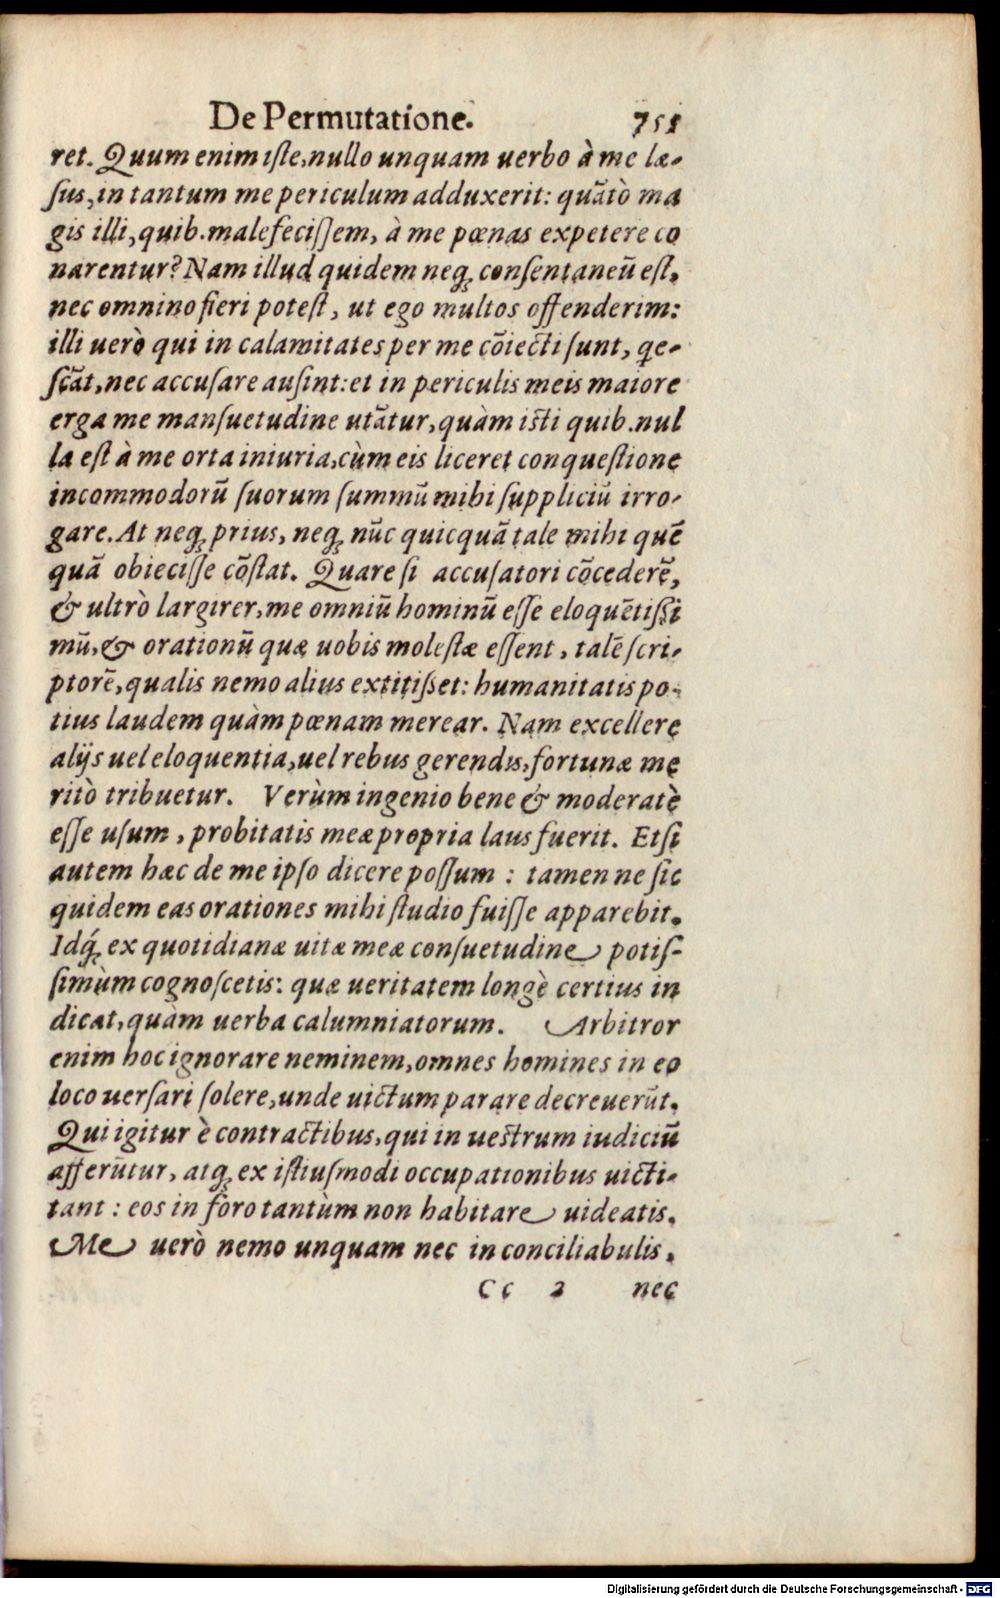 De Permutatione. 751
ret. Quum enim iste, nullo unquam uerbo à me læ-
sus, in tantum me periculum adduxerit: quātò ma
gis illi, quib. malefecissem, à me pœnas expetere co
narentur? Nam illud quidem neq; consentaneū est,
nec omnino fieri potest, ut ego multos offenderim:
illi uerò qui in calamitates per me cōiecti sunt, qe-
scāt, nec accusare ausint: et in periculis meis maiore
erga me mansuetudine utātur, quàm isti quib. nul
la est à me orta iniuria, cùm eis liceret conquestione
incommodorū suorum summū mihi suppliciū irro-
gare. At neq; prius, neq; nūc quicquā tale mihi quē
quā obiecisse cōstat. Quare si accusatori cōcederē,
& ultrò largirer, me omniū hominū esse eloquētissi
mū, & orationū quæ uobis molestæ essent, talē scri-
ptorē, qualis nemo alius extitisset: humanitatis po-
tius laudem quàm pœnam merear. Nam excellere
alijs uel eloquentia, uel rebus gerendis, fortunæ me
ritò tribuetur. Verùm ingenio bene & moderatè
esse usum, probitatis meæ propria laus fuerit. Etsi
autem hæc de me ipso dicere possum: tamen ne sic
quidem eas orationes mihi studio fuisse apparebit.
Idq́; ex quotidianæ uitæ meæ consuetudine potis-
simùm cognoscetis: quæ ueritatem longè certius in
dicat, quàm uerba calumniatorum. Arbitror
enim hoc ignorare neminem, omnes homines in eo
loco uersari solere, unde uictum parare decreuerūt.
Qui igitur è contractibus, qui in uestrum iudiciū
afferūtur, atq; ex istiusmodi occupationibus uicti-
tant: eos in foro tantùm non habitare uideatis.
Me uerò nemo unquam nec in conciliabulis,
Cc 2 nec
Digitalisierung gefördert durch die Deutsche Forschungsgemeinschaft - DFG